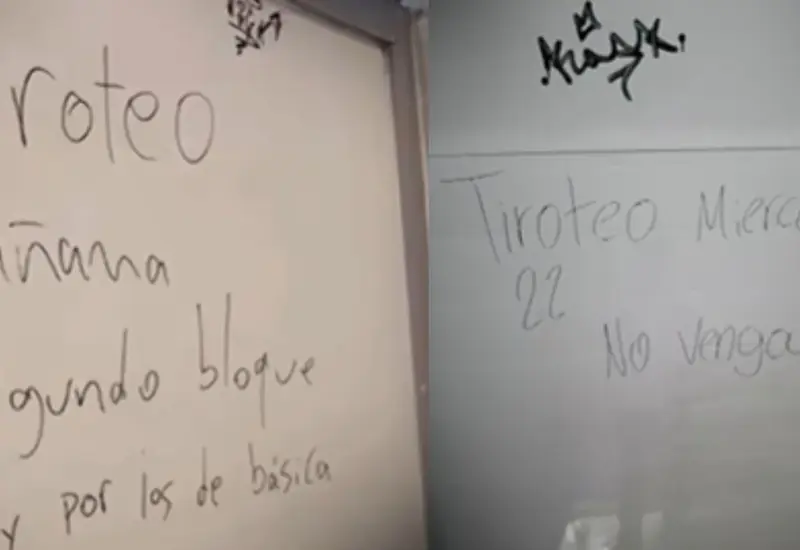 roteo
ñana
gundo bloque
y por los de básica
Tiroteo Mierc
22
No venga